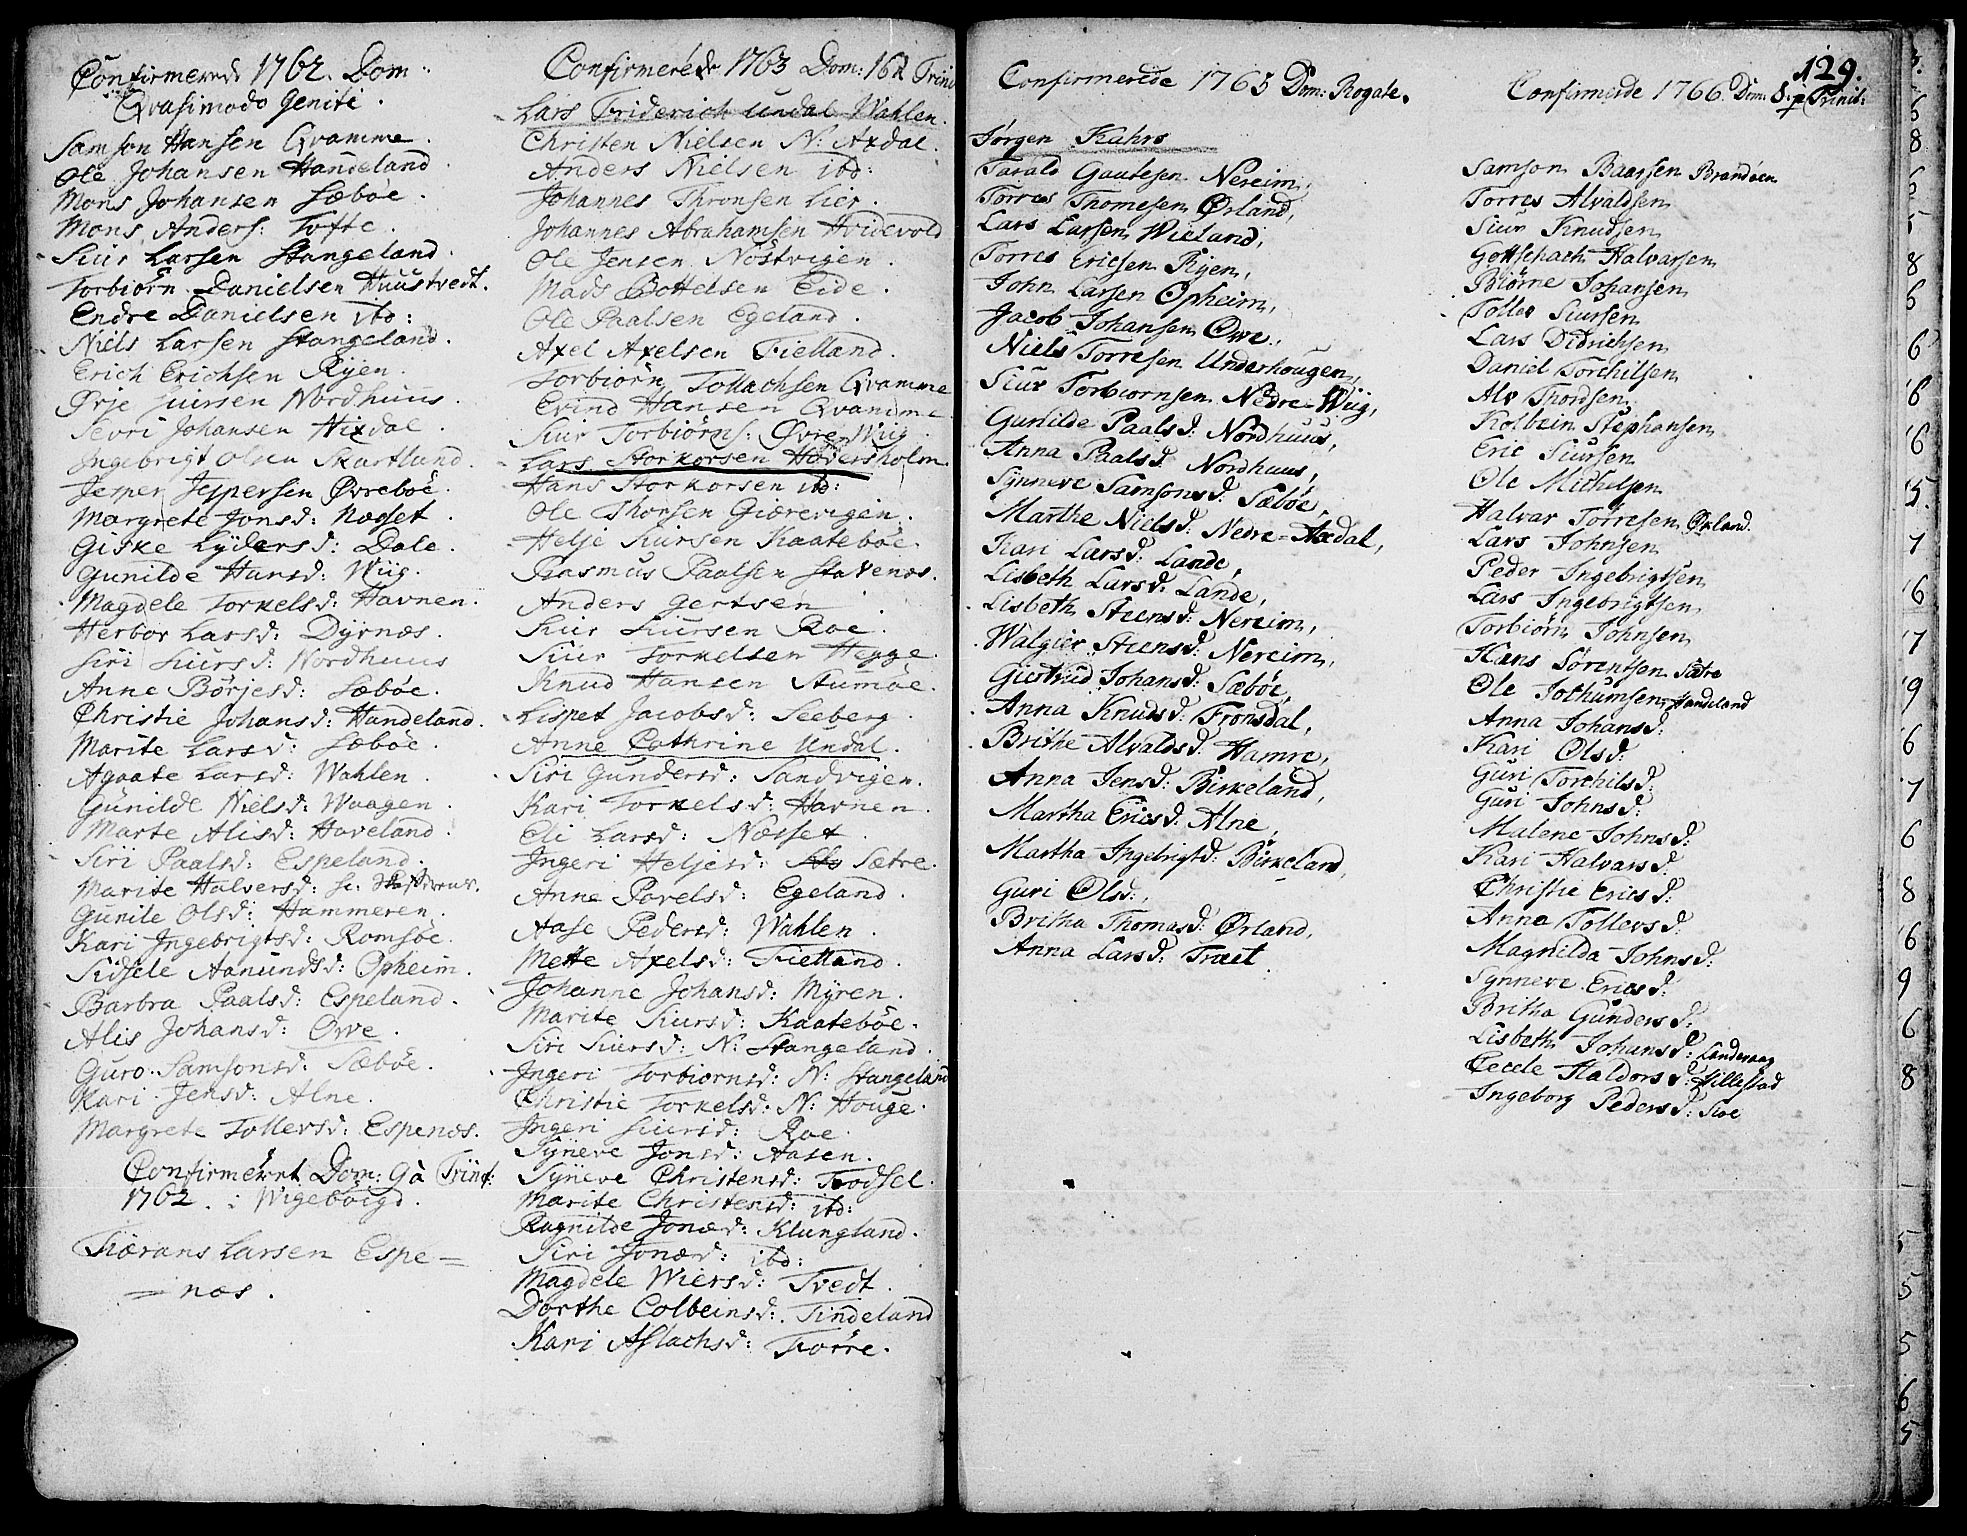 Confirmerede 1762. Dom:
Qvasimodo geniti.
Samson Hansen Qvamme.
Ole Johansen Handeland
Mons Johansen Sæbøe.
Mons Anders: Tofte.
Siur Larsen Stangeland.
Torbiörn Danielsen Huustvedt.
Endre Danielsen ibd:
Niels Larsen Stangeland.
Erich Erichsen Ryen.
Örje Siursen Nordhuus.
Sevri Johansen Hixdal.
Ingebrigt Olsen Skartland.
Jesper Jespersen Øvrebøe.
Margrete Jonsd: Næsset.
Giske Lydersd: Dale.
Gunilde Hansd: Wiig.
Magdele Torkelsd: Havnen.
Herbor Larsd: Dyrnæs.
Siri Siursd: Nordhuus
Anne Börjesd: Sæbøe.
Christie Johansd: Handeland.
Marite Larsd: Sæbøe.
Agaate Larsd: Wahlen.
Gunilde Nielsd: Waagen.
Marte Alisd: Haveland.
Siri Paalsd: Espeland.
Marite Halversd:
Gunile Olsd: Hammeren.
Kari Ingebrigtsd: Romsøe.
Sidsele Aamundsd: Opheim.
Barbra Paalsd: Espeland.
Alis Johansd: Øwe.
Guro Samsonsd: Sæbøe.
Kari Jensd: Alne.
Margrete Tollersd: Espenæs.
Confirmeret Dom: 9 à Trinit:
1762. i Wigebøigd.
Tiærans Larsen Espe=
=næs.
Confirmerede 1763 Dom: 16 à Trinit
Lars Friderich Undal Wahlen.
Christen Nielsen N: Axdal.
Anders Nielsen ibd:
Johannes Thronsen Lier.
Johannes Abrahamsen Hvidevold
Ole Jensen Nöstvigen.
Mads Bottelsen Eide.
Ole Paalsen Egeland.
Axel Axelsen Fielland.
Torbiörn Tollachsen Qvamme
Evind Hansen Qvamme
Siur Torbiörns: Øvre Wiig.
Lars Storkorsen Hoversholm.
Hans Storkorsen ibd:
Ole Thorsen Giærevigen.
Helje Siursen Kaatebøe.
Rasmus Paalsen Stavenæs.
Anders Gertsen
Siur Siursen Roe.
Siur Torkelsen Hegge.
Knud Hansen Stumøe.
Lispet Jacobsd: Seeberg.
Anne Cathrine Undal.
Siri Gundersd: Sandvigen.
Kari Torkelsd: Havnen.
Eli Larsd: Næsset.
Ingeri Heljesd: Sætre.
Anne Povelsd: Egeland.
Aase Pedersd: Wahlen.
Mette Axelsd: Fielland.
Johanne Johansd: Myren.
Marite Siursd: Kaatebøe.
Siri Siursd: N: Stangeland.
Ingeri Torbiornsd: N: Stangeland
Christie Torkelsd: N: Houge.
Ingeri Siursd: Roe.
Syneve Jonsd: Aasen.
Syneve Christensd: Trodsel.
Marite Christensd: ibd:
Ragnilde Jonæd: Klungland.
Siri Jonæd: ibd:
Magdele Wiersd: Tvedt.
Dorthe Colbeinsd: Tindeland
Kari Aslachsd: Tiörre.
129.
Confirmerede 1765 Dom: Rogate.
Jørgen Kahrs
Tarald Gautesen Nereim,
Torres Thomesen Ørland,
Lars Larsen Wieland,
Torres Ericsen Ryen,
John Larsen Opheim,
Jacob Johansen Øwe,
Niels Torresen Underhougen,
Siur Torbiornsen Nedre-Wiig,
Gunilde Paalsd: Nordhuus,
Anna Paalsd: Nordhuus,
Synneve Samsonsd: Sæbøe,
Marthe Nielsd: Nedre-Axdal,
Kari Larsd: Lande,
Lisbeth Larsd: Lande,
Lisbeth Steensd: Nereim,
Walgier Steensd: Nereim,
Giertrud Johansd: Sæbøe,
Anna Knudsd: Fronsdal,
Brithe Alvaldsd: Hamre,
Anna Jensd: Birkeland,
Martha Ericsd: Alne,
Martha Ingebrigtsd: Birkeland,
Guri Olsd:,
Britha Thomasd: Ørland,
Anna Larsd: Træet.
Confirmerde 1766 Dom: 8. p. Trinit:
Samson Baarsen Brandøen
Torres Alvaldsen
Siur Knudsen
Gottschach Halvarsen
Biörne Johansen
Toller Siursen
Lars Didrichsen
Daniel Torchilsen
Alv Thordsen
Kolbein Stephansen
Eric Siursen
Ole Michelsen
Halvar Torresen Ørland
Lars Johnsen
Peder Ingebrigtsen
Lars Ingebrigtsen
Torbiörn Johnsen
Hans Sørentsen Sætre
Ole Jothumsen Handeland
Anna Johansd:
Kari Olsd:
Guri Torchilsd:
Guri Johnsd:
Malene Johnsd:
Kari Halvarsd:
Christie Ericsd:
Anna Tollevsd:
Magnilda Johnsd:
Synneve Ericsd:
Britha Gundersd:
Lisbeth Johansd: Landevaag
Cecele Haldorsd: Hillestad
Ingeborg Pedersd: Sioe